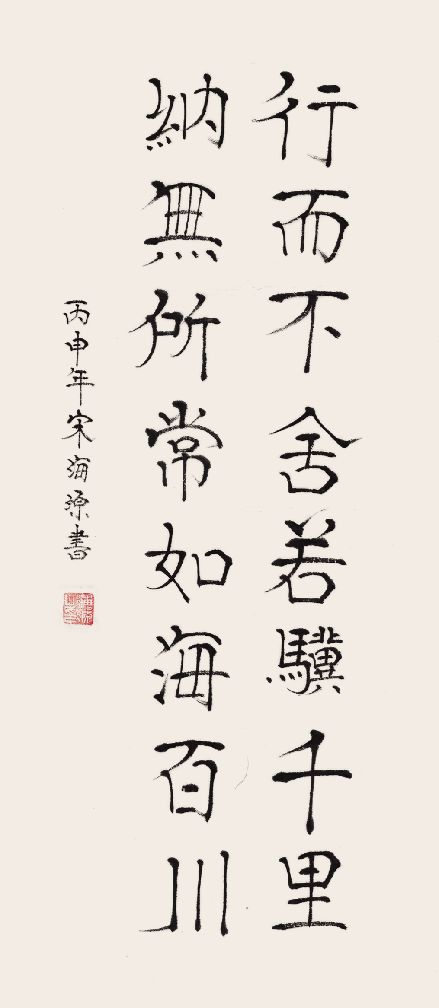 行而不舍若驥千里
納無所常如海百川
丙申年宋海源書